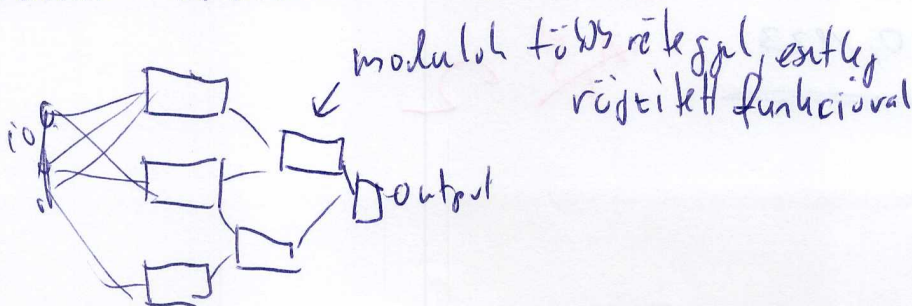 modulok több réteggel, esetleg
rögzített funkcióval
output